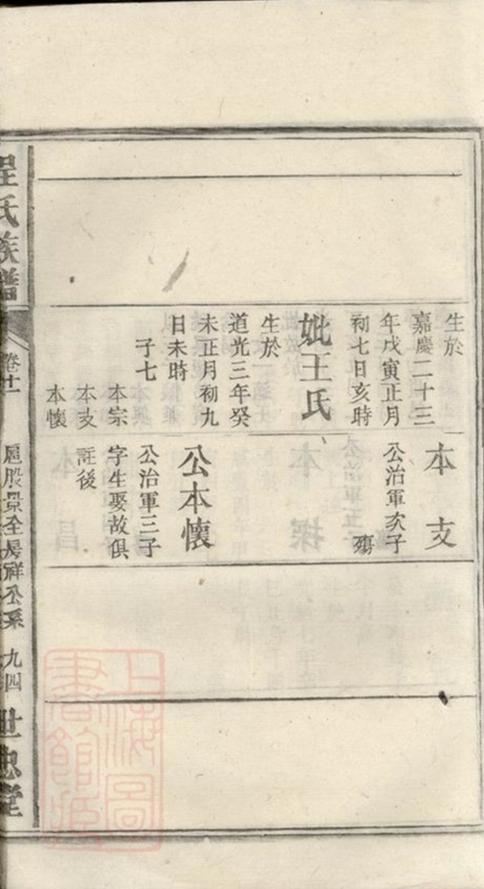 生於
嘉慶二十三
年戊寅正月
初七日亥時
妣王氏
生於
道光三年癸
未正月初九
日未時
子七
本宗
本支
本懷
本支
公治軍次子
殤
公本懷
公治軍三子
字生娶故俱
註後
程氏族譜
卷十一
恩股景全房祥公系
九四
世忠堂
上海圖
書館藏